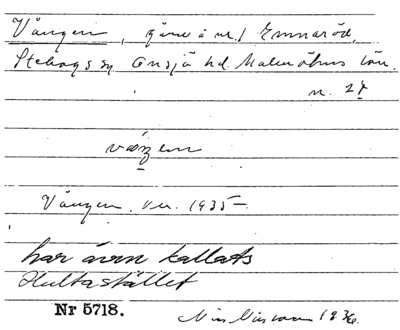 Vången, gård å nr. 1 Emmaröd,
Stehags sn Onsjö hd. Malmöhus län.
n. 27
vàŋen
Vången. 1935
har även kallats
Hultastället
Nr 5718. Nils Nilsson 1936.